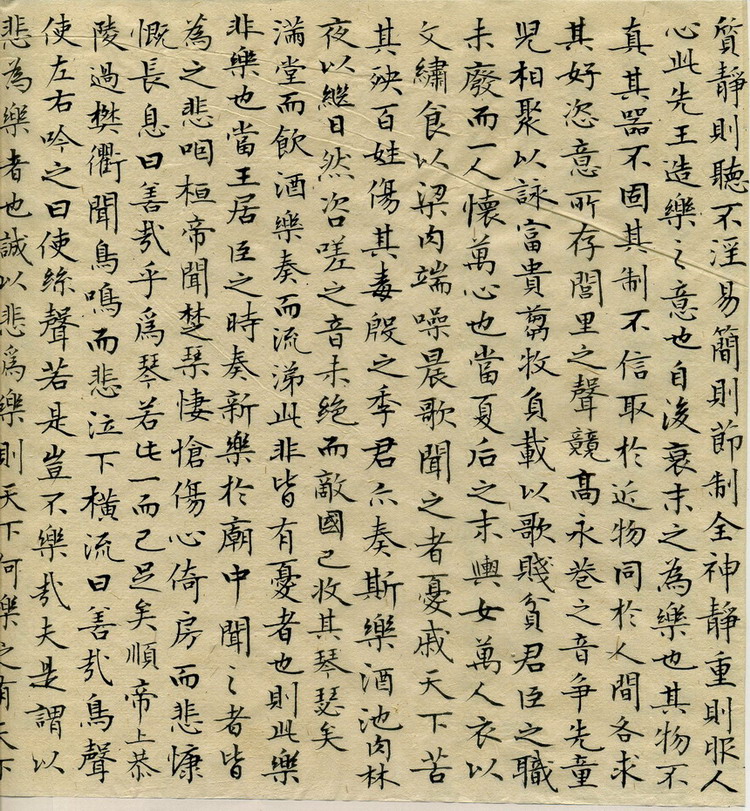 質靜則聽不淫易簡則節制全神靜重則服人
心此先王造樂之意也自後衰末之為樂也其物不
真其器不固其制不信取於近物同於人間各求
其好恣意所存閭里之聲競髙永巷之音争先童
児相聚以詠富貴蒭牧負載以歌賤貧君臣之職
未廢而一人懷萬心也當夏后之末輿女萬人衣以
文繡食以梁肉端噪晨歌聞之者憂戚天下苦
其殃百姓傷其毒殷之季君亦奏斯樂酒池肉林
夜以繼日然咨嗟之音未絶而敵國已收其琴瑟矣
滿堂而飲酒樂奏而流涕此非皆有憂者也則此樂
非樂也當王居臣之時奏新樂於廟中聞之者皆
為之悲咽桓帝聞楚琹悽愴傷心倚房而悲慷
慨長息曰善㢤乎爲琴若此一而已足矣順帝上恭
陵過樊衢聞鳥鳴而悲泣下横流曰善㢤鳥聲
使左右吟之曰使絲聲若是豈不樂㢤夫是謂以
悲為樂者也誠以悲爲樂則天下何樂之有天下